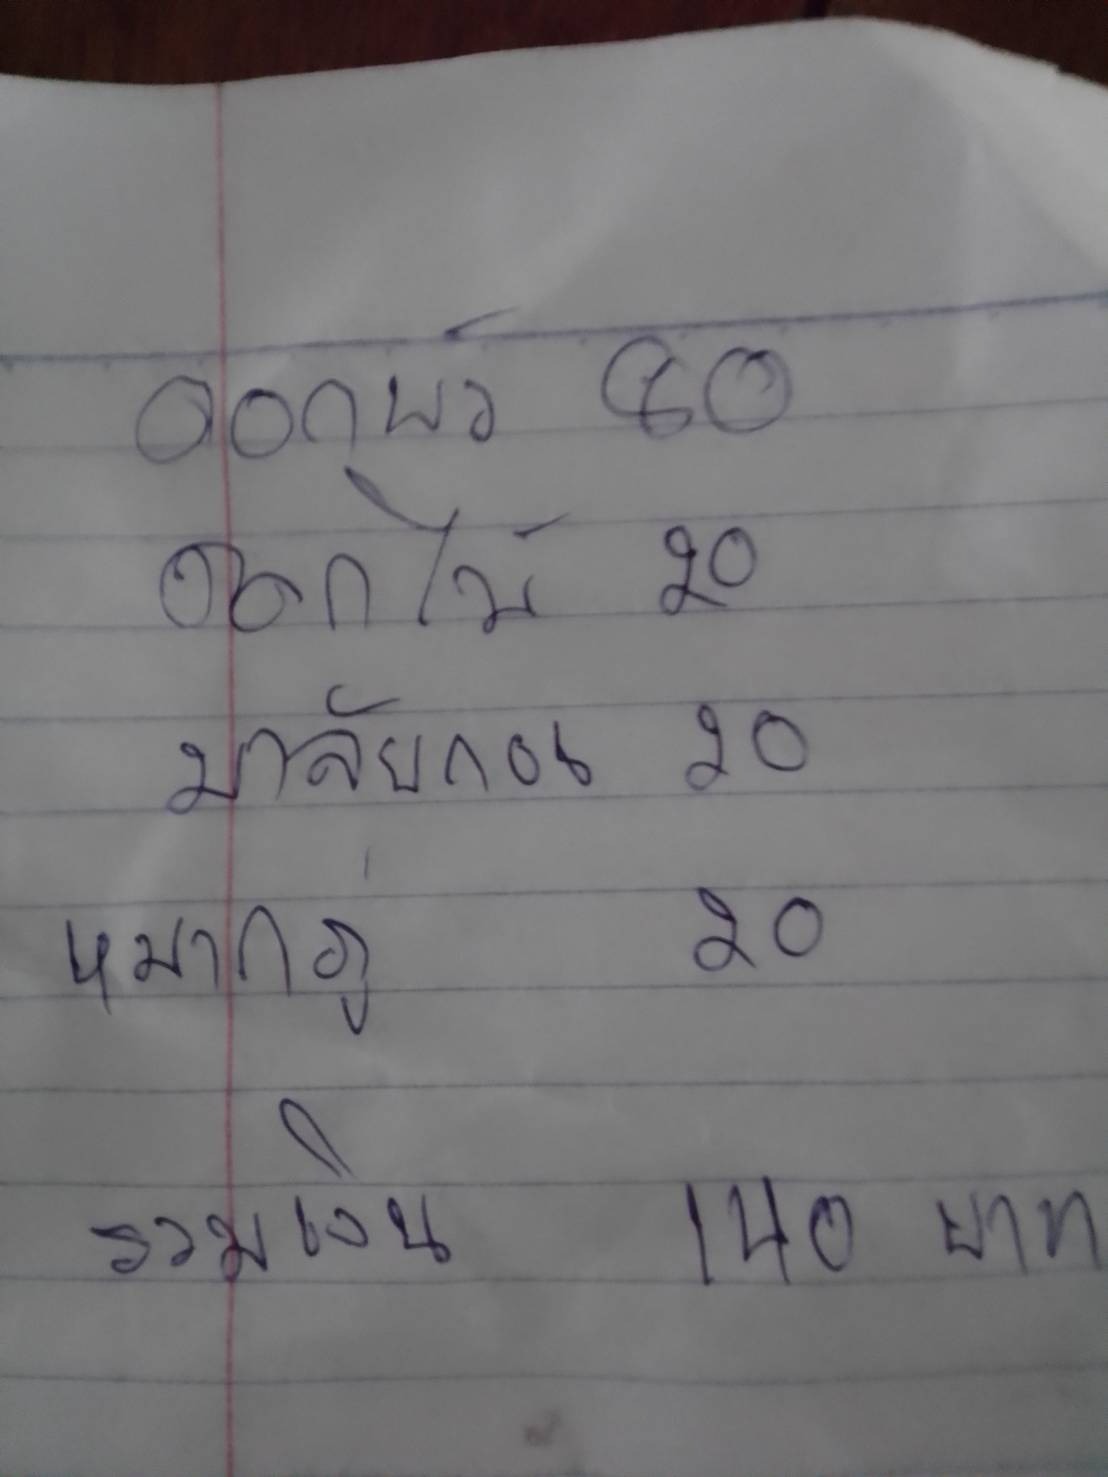 ดอกบัว 80
ดอกไม้ 20
มาลัยกอน 20
หมากภู่ 20
รวมเงิน 140 บาท